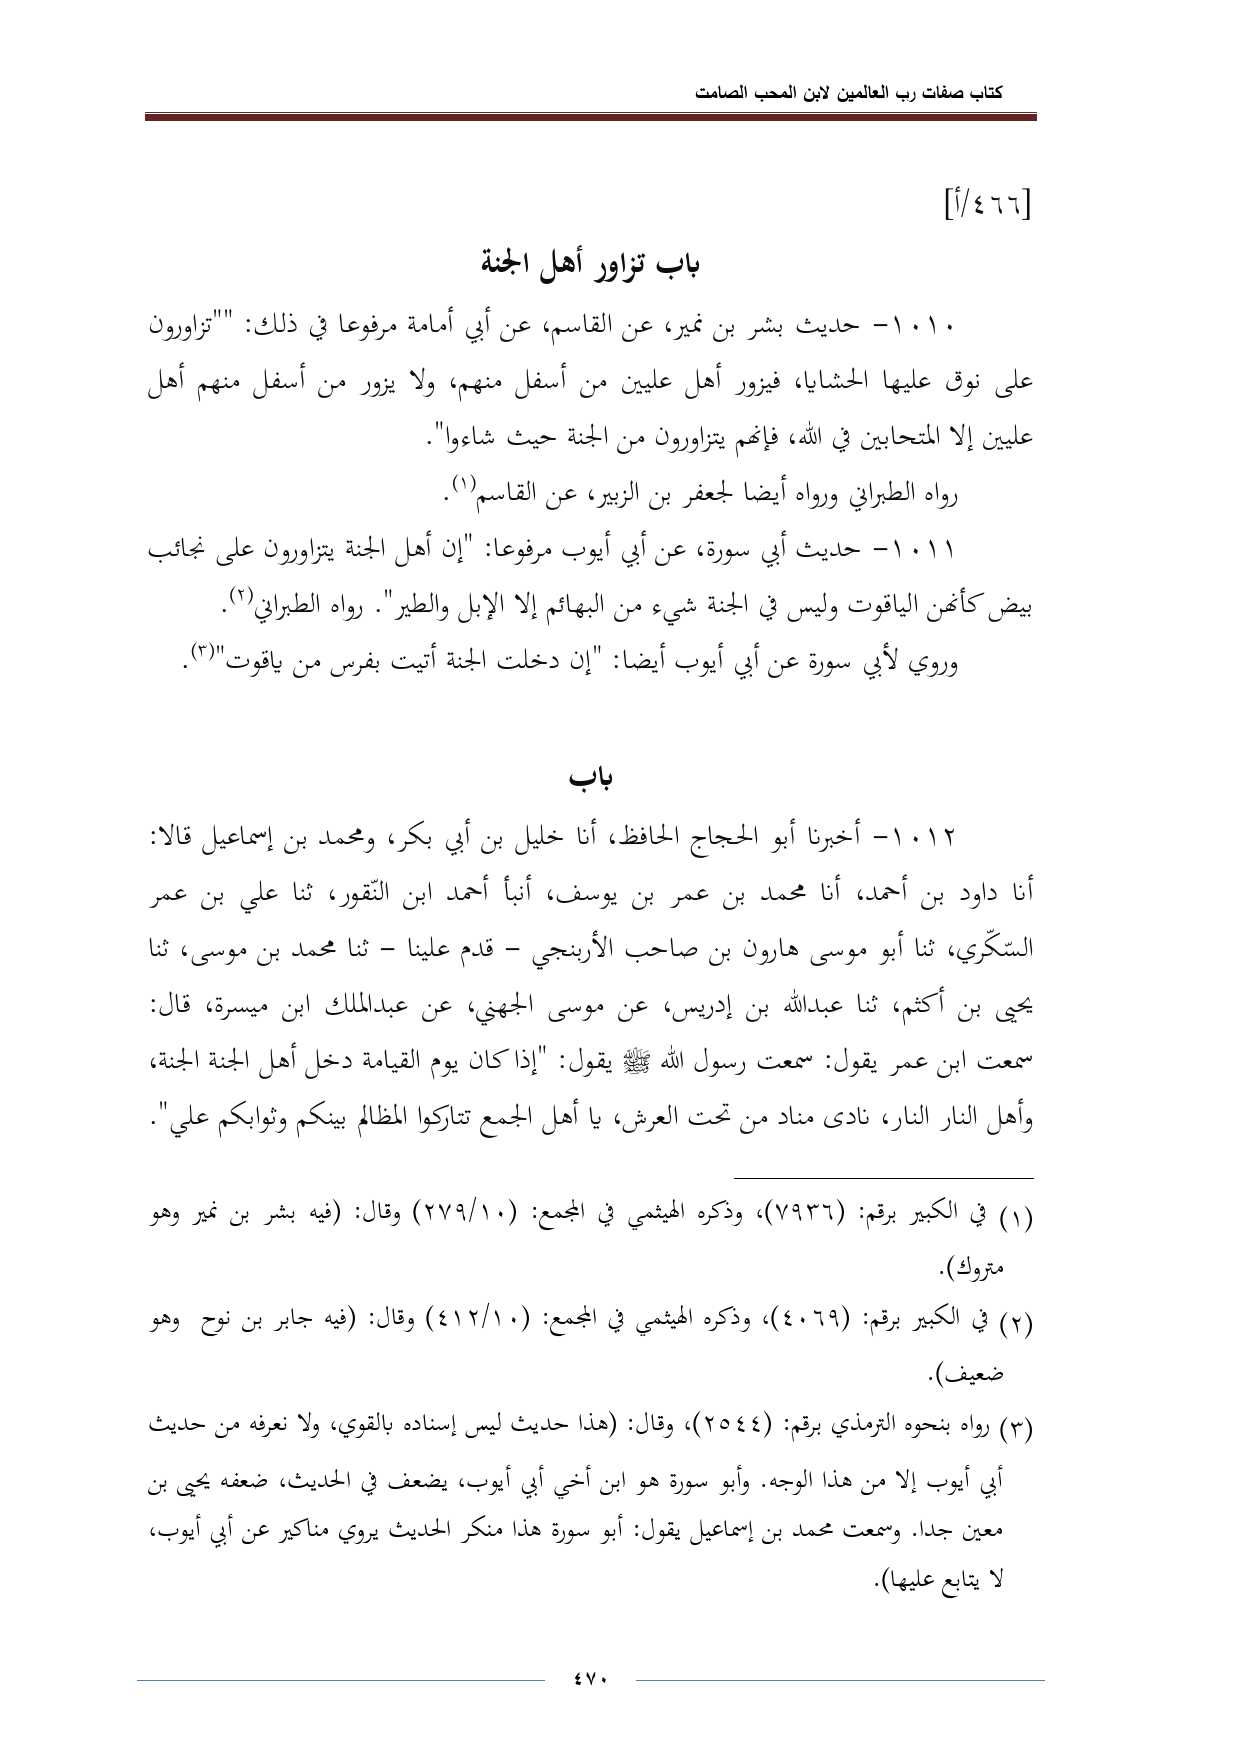 كتاب صفات رب العالمين لابن المحب الصامت
[٤٦٦/أ]
باب تزاور أهل الجنة
١٠١٠- حديث بشر بن نمير، عن القاسم، عن أبي أمامة مرفوعا في ذلك: ""تزاورون
على نوق عليها الحشايا، فيزور أهل عليين من أسفل منهم، ولا يزور من أسفل منهم أهل
عليين إلا المتحابين في الله، فإنهم يتزاورون من الجنة حيث شاءوا".
رواه الطبراني ورواه أيضا لجعفر بن الزبير، عن القاسم(١).
١٠١١- حديث أبي سورة، عن أبي أيوب مرفوعا: "إن أهل الجنة يتزاورون على نجائب
بيض كأنهن الياقوت وليس في الجنة شيء من البهائم إلا الإبل والطير". رواه الطبراني(٢).
وروي لأبي سورة عن أبي أيوب أيضا: "إن دخلت الجنة أتيت بفرس من ياقوت"(٣).
باب
١٠١٢- أخبرنا أبو الحجاج الحافظ، أنا خليل بن أبي بكر، ومحمد بن إسماعيل قالا:
أنا داود بن أحمد، أنا محمد بن عمر بن يوسف، أنبأ أحمد ابن النّقور، ثنا علي بن عمر
السّكّري، ثنا أبو موسى هارون بن صاحب الأربنجي – قدم علينا – ثنا محمد بن موسى، ثنا
يحيى بن أكثم، ثنا عبدالله بن إدريس، عن موسى الجهني، عن عبدالملك ابن ميسرة، قال:
سمعت ابن عمر يقول: سمعت رسول الله ﷺ يقول: "إذا كان يوم القيامة دخل أهل الجنة الجنة،
وأهل النار النار، نادى مناد من تحت العرش، يا أهل الجمع تتاركوا المظالم بينكم وثوابكم علي".
(١) في الكبير برقم: (٧٩٣٦)، وذكره الهيثمي في المجمع: (٢٧٩/١٠) وقال: (فيه بشر بن نمير وهو
متروك).
(٢) في الكبير برقم: (٤٠٦٩)، وذكره الهيثمي في المجمع: (٤١٢/١٠) وقال: (فيه جابر بن نوح وهو
ضعيف).
(٣) رواه بنحوه الترمذي برقم: (٢٥٤٤)، وقال: (هذا حديث ليس إسناده بالقوي، ولا نعرفه من حديث
أبي أيوب إلا من هذا الوجه. وأبو سورة هو ابن أخي أبي أيوب، يضعف في الحديث، ضعفه يحيى بن
معين جدا. وسمعت محمد بن إسماعيل يقول: أبو سورة هذا منكر الحديث يروي مناكير عن أبي أيوب،
لا يتابع عليها).
٤٧٠